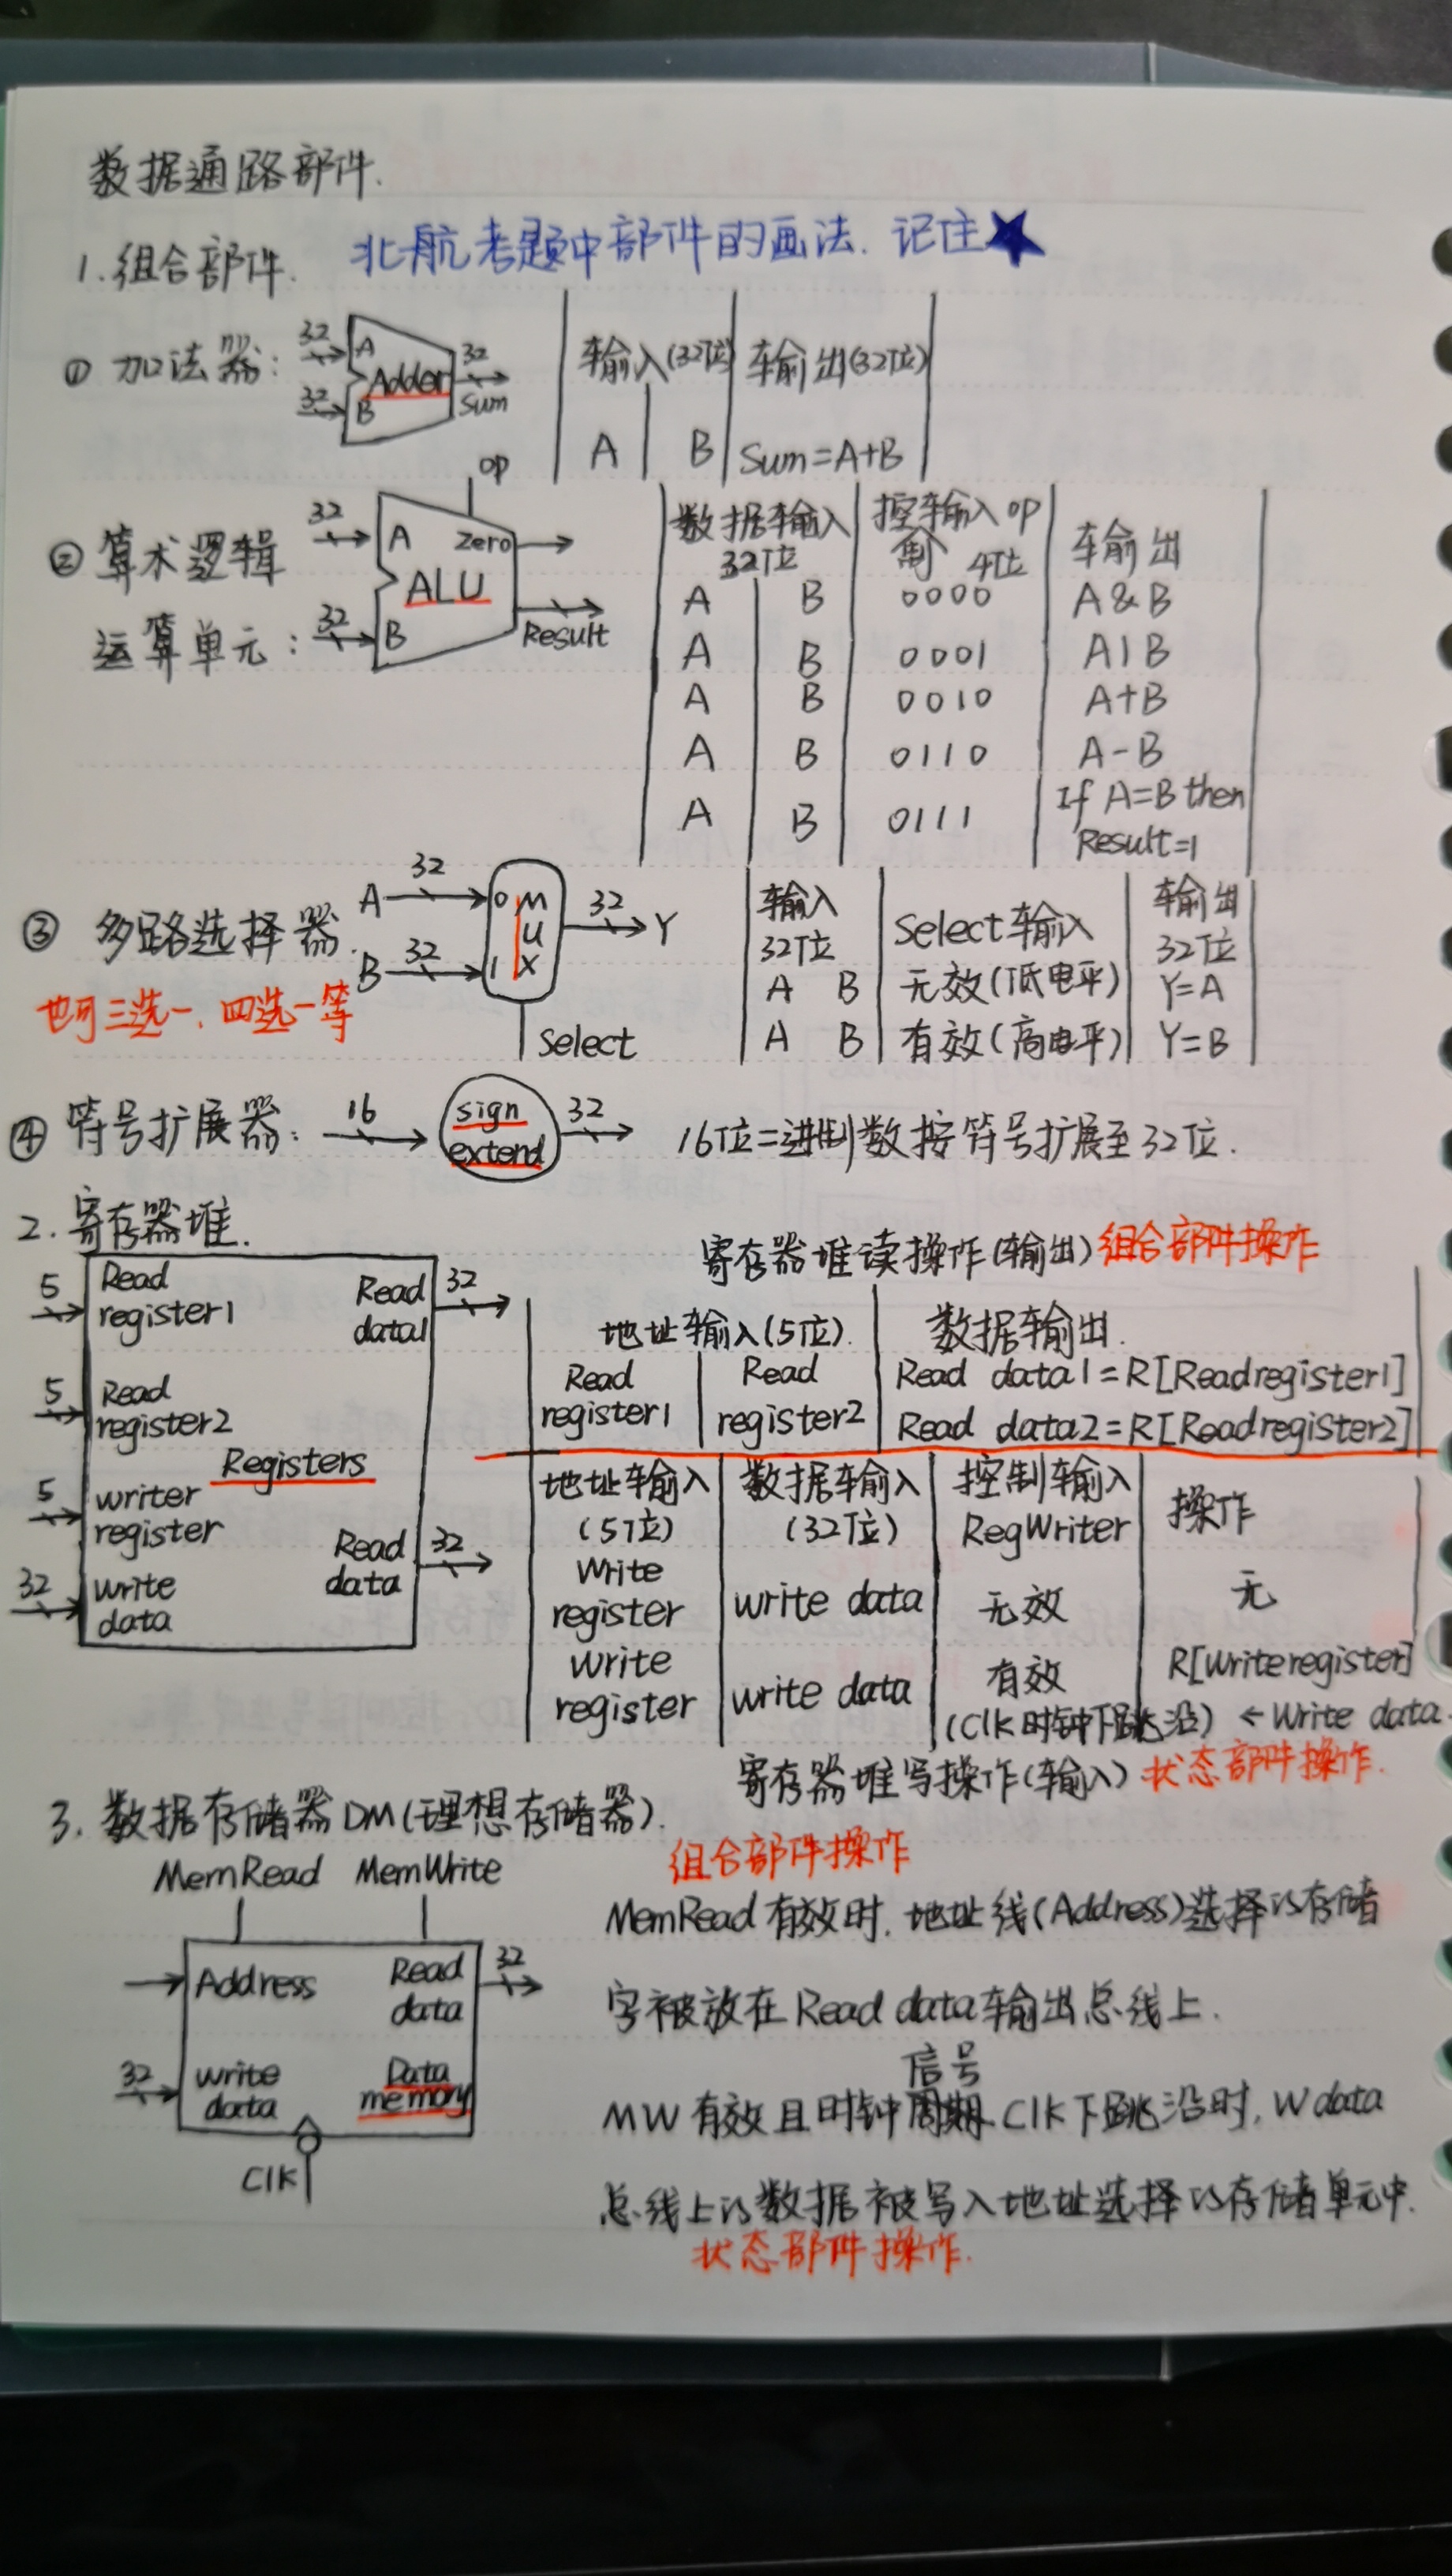 数据通路部件.
1.组合部件. 北航考题中部件的画法. 记住★
① 加法器: 32 A 32 B Adder 32 Sum
输入(32位) 输出(32位)
A B Sum=A+B
② 算术逻辑
运算单元:
op
32 A Zero
ALU
32 B Result
数据输入 32位 控制输入 op 4位 输出
A B 0000 A&B
A B 0001 A|B
A B 0010 A+B
A B 0110 A-B
A B 0111 If A=B then
Result=1
③ 多路选择器.
也可三选一、四选一等
A 32 0 MUX 32 Y
B 32 1
Select
输入 32位 Select输入 输出 32位
A B 无效(低电平) Y=A
A B 有效(高电平) Y=B
④ 符号扩展器: 16 sign extend 32 16位二进制数按符号扩展至32位.
2.寄存器堆.
5 Read register1 Read data1 32
5 Read register2
Registers
5 writer register
32 write data Read data 32
寄存器堆读操作(输出) 组合部件操作
地址输入(5位). 数据输出.
Read register1 Read register2 Read data1=R[Readregister1]
Read data2=R[Readregister2]
地址输入 (5位) 数据输入 (32位) 控制输入 RegWriter 操作
Write register write data 无效 无
Write register write data 有效 (Clk时钟下跳沿) R[Writeregister] ←Write data
寄存器堆写操作(输入) 状态部件操作.
3.数据存储器DM(理想存储器).
MemRead MemWrite
Address Read data 32
32 write data Data memory
Clk
组合部件操作
MemRead有效时,地址线(Address)选择的存储
字被放在Read data输出总线上.
信号
MW有效且时钟周期Clk下跳沿时,Wdata
总线上的数据被写入地址选择的存储单元中.
状态部件操作.